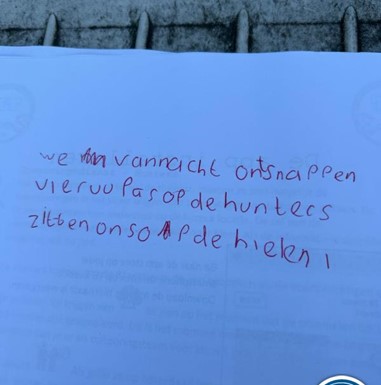 we vannacht ontsnappen
vieruu Pas op de hunters
zitten ons op de hielen !